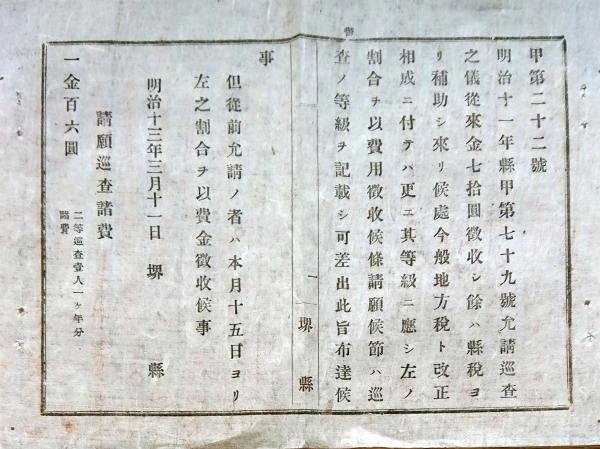 甲第二十二號
明治十一年縣甲第七十九號允請巡査
之儀從來金七拾圓徵收シ餘ハ縣税ヨ
リ補助シ來リ候處今般地方税ト改正
相成ニ付テハ更ニ其等級ニ應シ左ノ
割合ヲ以費用徵收候條請願候節ハ巡
査ノ等級ヲ記載シ可差出此旨布達候
一
堺縣
事
但從前允請ノ者ハ本月十五日ヨリ
左之割合ヲ以費金徵收候事
明治十三年三月十一日 堺縣
請願巡査諸費
一金百六圓
二等巡査壹人一ヶ年分
諸費